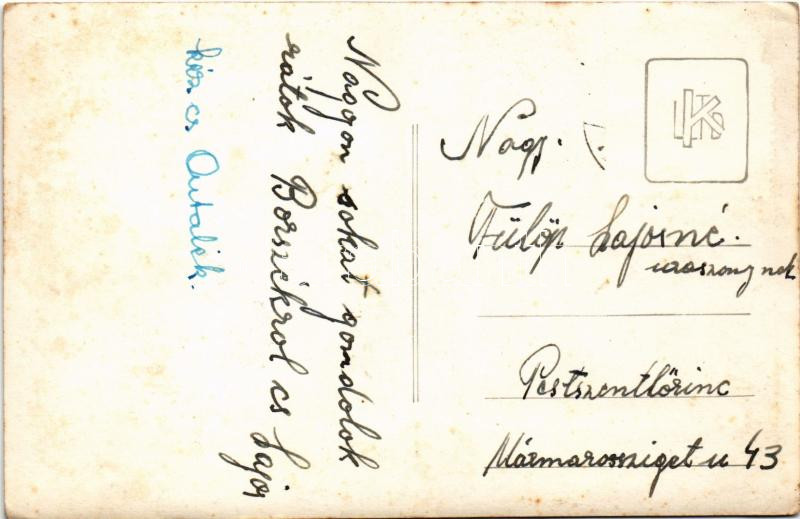 Nagyon sokat gondolok
rátok Borszékrol cs Lajos
kéz cs Antalék.
Nagy.
Fülöp Lajosné.
uraszonynak
Pestszentlőrinc
Mármarossziget u 43